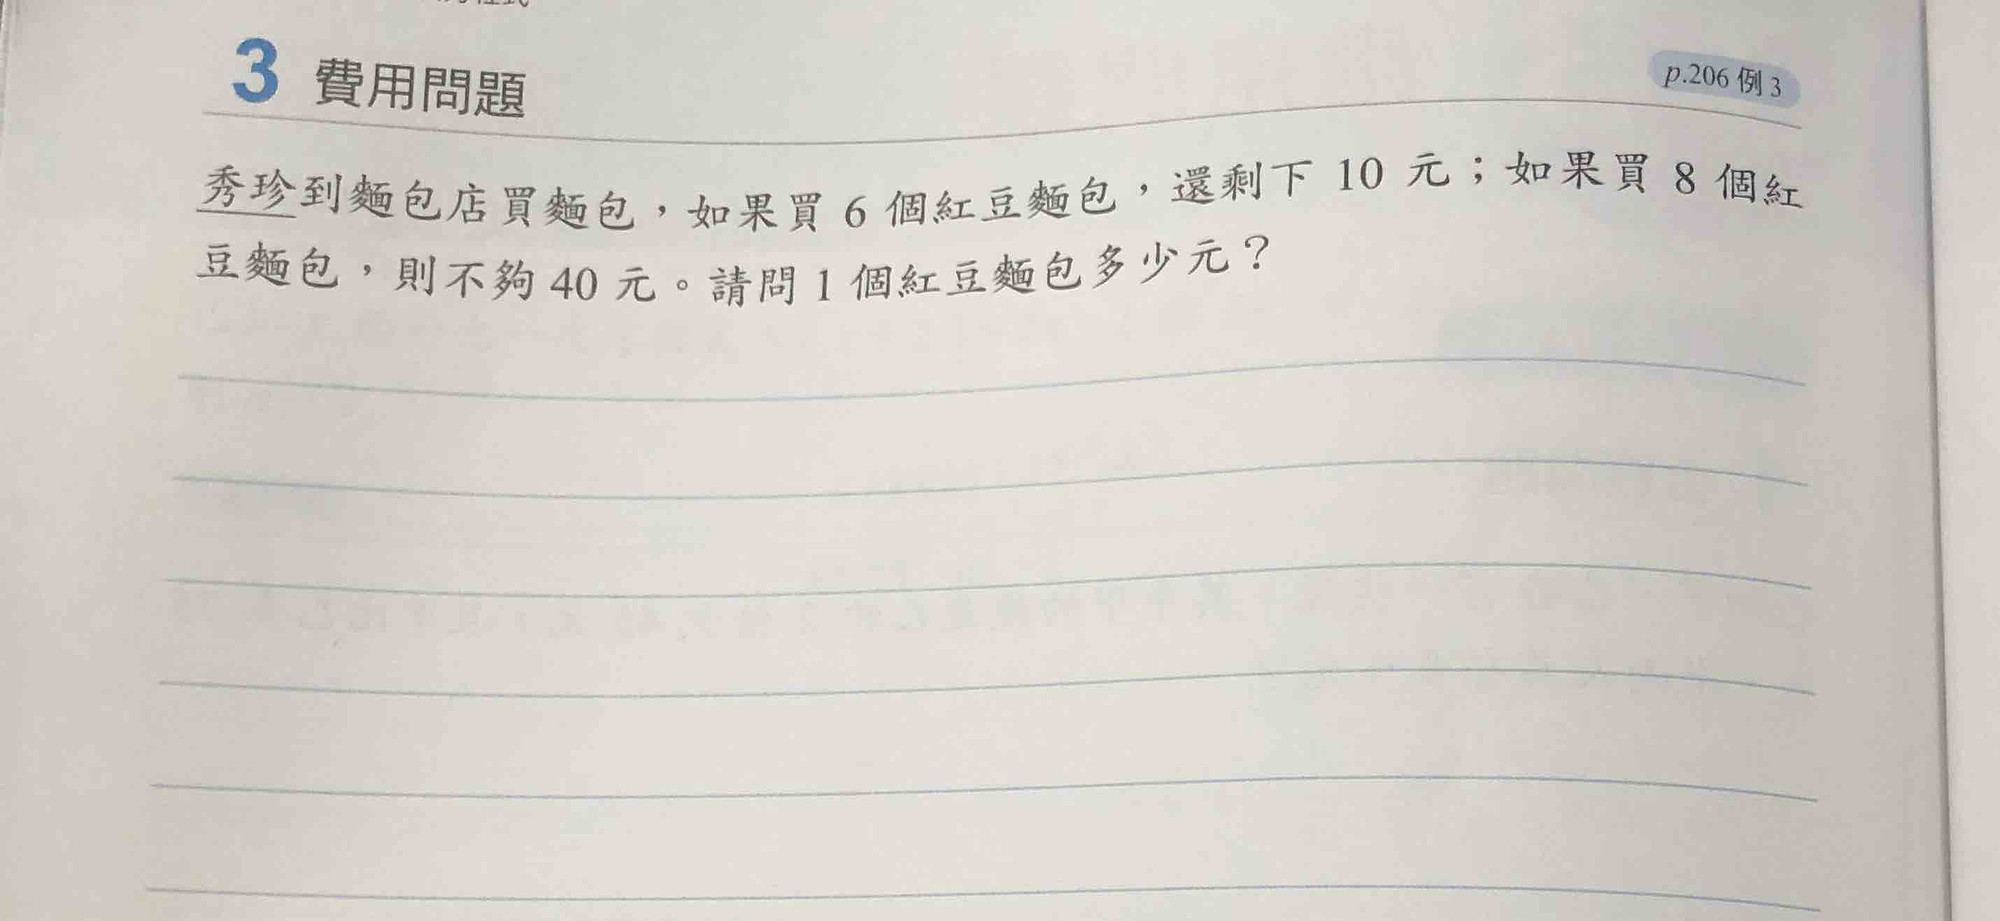 3 費用問題
p.206 例 3
秀珍到麵包店買麵包，如果買 6 個紅豆麵包，還剩下 10 元；如果買 8 個紅
豆麵包，則不夠 40 元。請問 1 個紅豆麵包多少元？